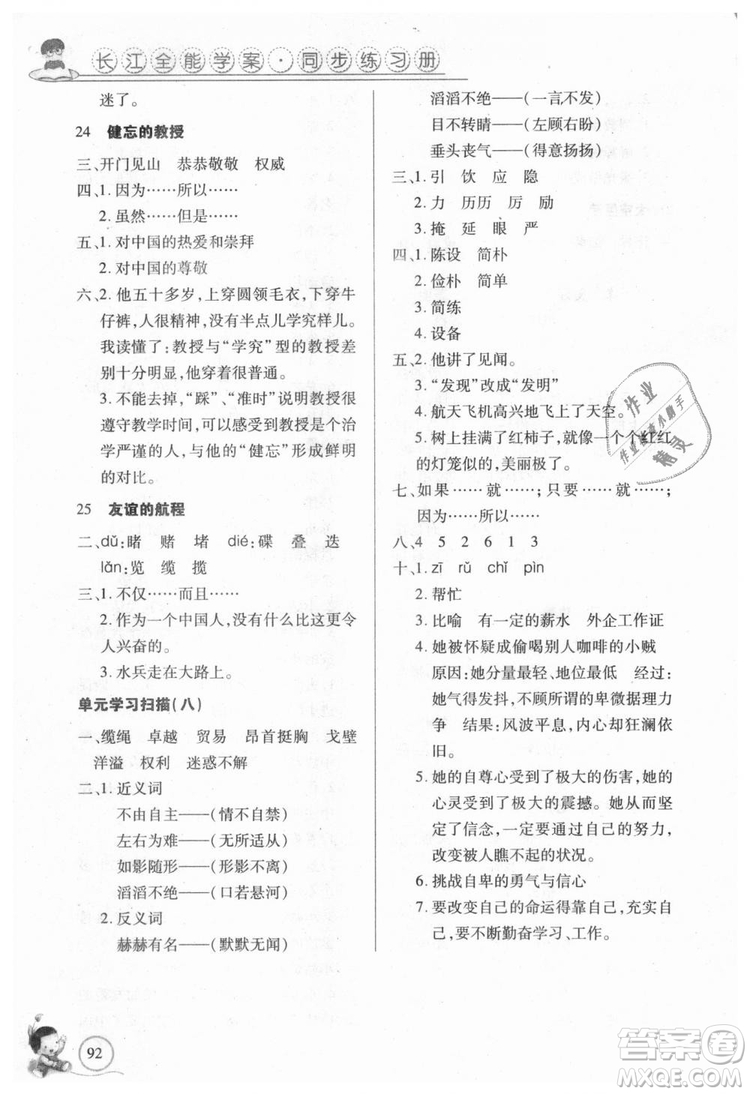 长江全能学案·同步练习册
迷了。
24 健忘的教授
三、开门见山 恭恭敬敬 权威
四、1. 因为……所以……
2. 虽然……但是……
五、1. 对中国的热爱和崇拜
2. 对中国的尊敬
六、2. 他五十多岁，上穿圆领毛衣，下穿牛
仔裤，人很精神，没有半点儿学究样儿。
我读懂了：教授与“学究”型的教授差
别甚大，他穿着很普通。
3. 不能去掉，“踩”、“准时”说明教授很
遵守教学时间，可以感受到教授是个治
学严谨的人，与他的“健忘”形成鲜明
的对比。
25 友谊的航程
二、dǔ：睹 赌 堵 dié：碟 叠 迭
lǎn：览 缆 揽
三、1. 不仅……而且……
2. 作为一个中国人，没有什么比这更令
人兴奋的。
3. 水兵走在大路上。
单元学习扫描（八）
一、缆绳 卓越 贸易 昂首挺胸 戈壁
洋溢 权利 迷惑不解
二、1. 近义词
不由自主——（情不自禁）
左右为难——（无所适从）
如影随形——（形影不离）
滔滔不绝——（口若悬河）
2. 反义词
赫赫有名——（默默无闻）
滔滔不绝——（一言不发）
目不转睛——（左顾右盼）
垂头丧气——（得意扬扬）
三、1. 引 饮 应 隐
2. 力 历历 厉 励
3. 掩 延 眼 严
四、1. 陈设 简朴
2. 俭朴 简单
3. 简练
4. 设备
五、2. 他讲了见闻。
3. “发现”改成“发明”
4. 航天飞机高兴地飞上了天空。
5. 树上挂满了红柿子，就像一个个红红
的灯笼似的，美丽极了。
七、如果……就……；只要……就……；
因为……所以……
八、4 5 2 6 1 3
十、1. zī rǔ chǐ pìn
2. 帮忙
3. 比喻 有一定的薪水 外企工作证
4. 她被怀疑成偷喝别人咖啡的小贼
原因：她分量最轻、地位最低 经过：
她气得发抖，不顾所谓的卑微据理力
争 结果：风波平息，内心却狂澜依
旧。
5. 她的自尊心受到了极大的伤害，她的
心灵受到了极大的震撼。她从而坚
定了信念，一定要通过自己的努力，
改变被人瞧不起的状况。
6. 挑战自卑的勇气与信心
7. 要改变自己的命运得靠自己，自己
要不断勤奋学习、工作。
作业
作业检查小助手
精灵
92
答案圈
MXQE.COM